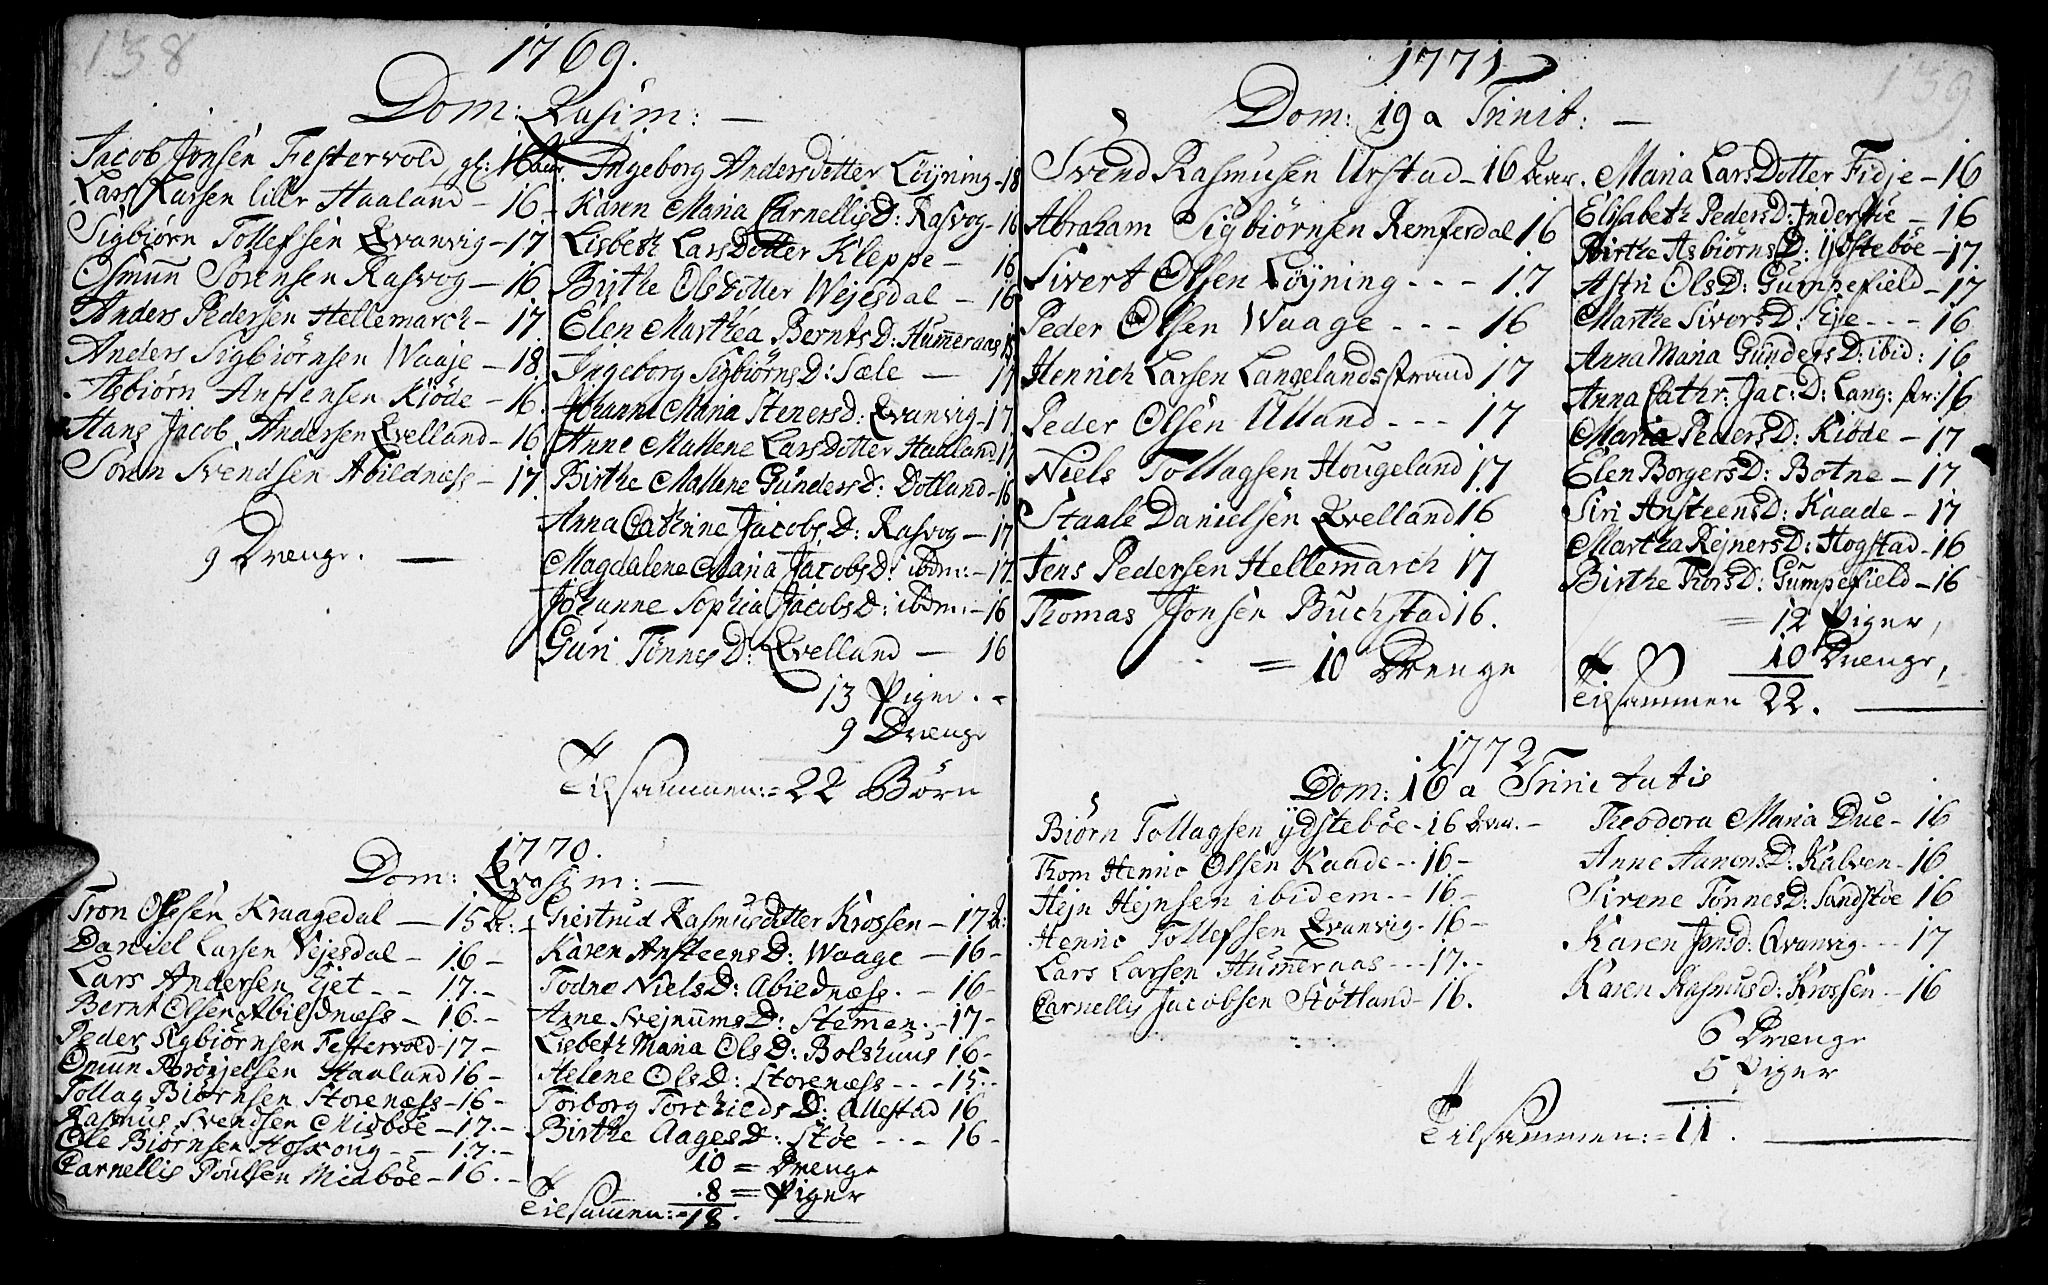 138
1769.
Dom: Qvasim: —
Jacob Jonsen Festervold, gl: 16 aar.
Lars Larsen lille Haaland - 16 -
Sigbiørn Tollefsen Qvanvig - 17
Osmun Sørensen Rasvog - 16
Anders Pedersen Hellemarch - 17.
Anders Sigbiørnsen Waaje - 18.
Asbiørn Anstensen Kiøde - 16.
Hans Jacob Andersen Qvelland - 16.
Søren Svendsen Abildnæss - 17.
9 Drenge. —
Ingeborg Andersdotter Løyning - 18
Karen Maria CarnellisD: Rasvog - 16
Lisbeth LarsDotter Kleppe - 16
Birthe Olsdotter Wejesdal - 16
Elen Marthea BerntsD: Hum̅eraas 15
Ingeborg SigbiørnsD: Sæle — 17
Johanne Maria StenersD: Qvanvig - 17
Anne Mallene LarsDotter Haaland 17
Birthe Mallene GundersD: Dotland - 16
Anna Cathrine JacobsD: Rasvog - 17
Magdalene Maria JacobsD: ibdm: - 17.
Johanne Sophia JacobsD: ibdm: - 16
Guri TønnesD: Qvelland — 16
13 Piger. -
9 Drenge
Tilsammen: = 22 Børn
1770.
Dom: Qvasim: —
Tron Olesen Kraagedal — 15
Daniel Larsen Vejesdal - 16 -
Lars Andersen Ejet - - 17. -
Bernt Olsen Abildnæss - 16. -
Peder Sigbiørnsen Festervold - 17 -
Omun Haaland 16 -
Tollag Biørnsen Storenæss - 16 -
Rasmus Svendsen Midbøe - 17. -
Ole Biørnsen - - 17. -
Carnellis Poulsen Midbøe - 16. -
Giertrud Rasmusdatter Krossen - 17
Karen AnsteensD: Waage — 16 -
Todne NielsD: Abildnæss. - 16 -
Anne SvejnumsD: Stemen. - 17 -
Lisbeth Maria OlsD: Bolshuus 16 -
Helene OlsD: Storenæss - - - 15. -
Torborg TorchieldsD: Allestad 16
Birthe AagesD: Støe - - - 16 -
10 = Drenge
8 = Piger
Tilsam̅en: = 18.
139
1771
Dom: 19 a Trinit: —
Svend Rasmusen Urstad - 16
Abraham Sigbiørnsen Remfesdal 16
Sivert Olsen Løyning - - - 17
Peder Olsen Waage - - - 16
Henrich Larsen Langelandsstrand 17
Peder Olsen Ulland - - - 17
Niels Tollagsen Hougeland 17
Staale Danielsen Qvelland 16
Jens Pedersen Hellemarch 17
Thomas Jonsen Buchstad 16.
= 10 Drenge
Maria LarsDotter Fidje - 16
Elisabeth PedersD: - 16
Birthe AsbiørnsD: Ydstebøe - 17
Astri OlsD: Gumpefield - 17
Marthe SiversD: Eje - - - 16
Anna Maria GundersD: ibid: 16
Anna Cathr: Jac: D: Lang: str: 16
Maria PedersD: Kiøde - 17
Elen BorgersD: Botne - 17
Siri AnsteensD: Kaade - 17
Martha RejnersD: Hogstad - 16
Birthe ThorsD: Gumpefield - 16
= 12 Piger,
10 Drenge,
Tilsammen 22. —
1772
Dom: 16 a Trinitatis
Biørn Tollagsen Ydstebøe - 16
Thom Henric Olsen Kaade - - 16 -
Hejn Hejnsen ibidem - - 16 -
Henric Tollefsen Qvanvig - 16 -
Lars Larsen Hum̅eraas - - - 17. -
Carnellis Jacobsen Støtland - 16.
Theodora Maria Due - 16
Anne AanonsD: Kalven - 16
Sirene TønnesD: Sandstøe 16
Karen Jonsd: Qvanvig - - - 17
Karen Rasmusd: Krossen - - 16
6 Drenge
5 Piger
Tilsammen: = 11. —